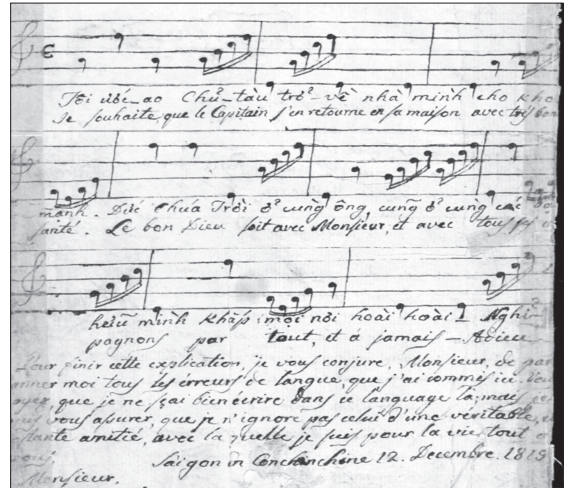 Tôi ước_ao Chủ_tàu trở_về nhà mình cho kho
Je souhaite, que le Capitain s'en retourne en sa maison avec très bon
mạnh. Đức Chúa Trời ở cùng ông cũng ở cùng các
santé. Le bon Dieu soit avec Monsieur, et avec tous ses
hữu mình khắp mọi nơi hoài hoài_ Nghỉ
pagnons par tout, et à jamais_ Adieu
Pour finir cette explication, je vous conjure, Monsieur, de par
nner moi tous les erreurs de langue, que j'ai commis ici.
ayez, que je ne sçai bien écrire dans ce language là; mais
vous assurer, que je n'ignore pas celui d'une véritable,
stante amitié, avec la quelle je suis pour la vie, tout
vous
Saigon in Conchinchine 12. Decembre. 1819
Monsieur.